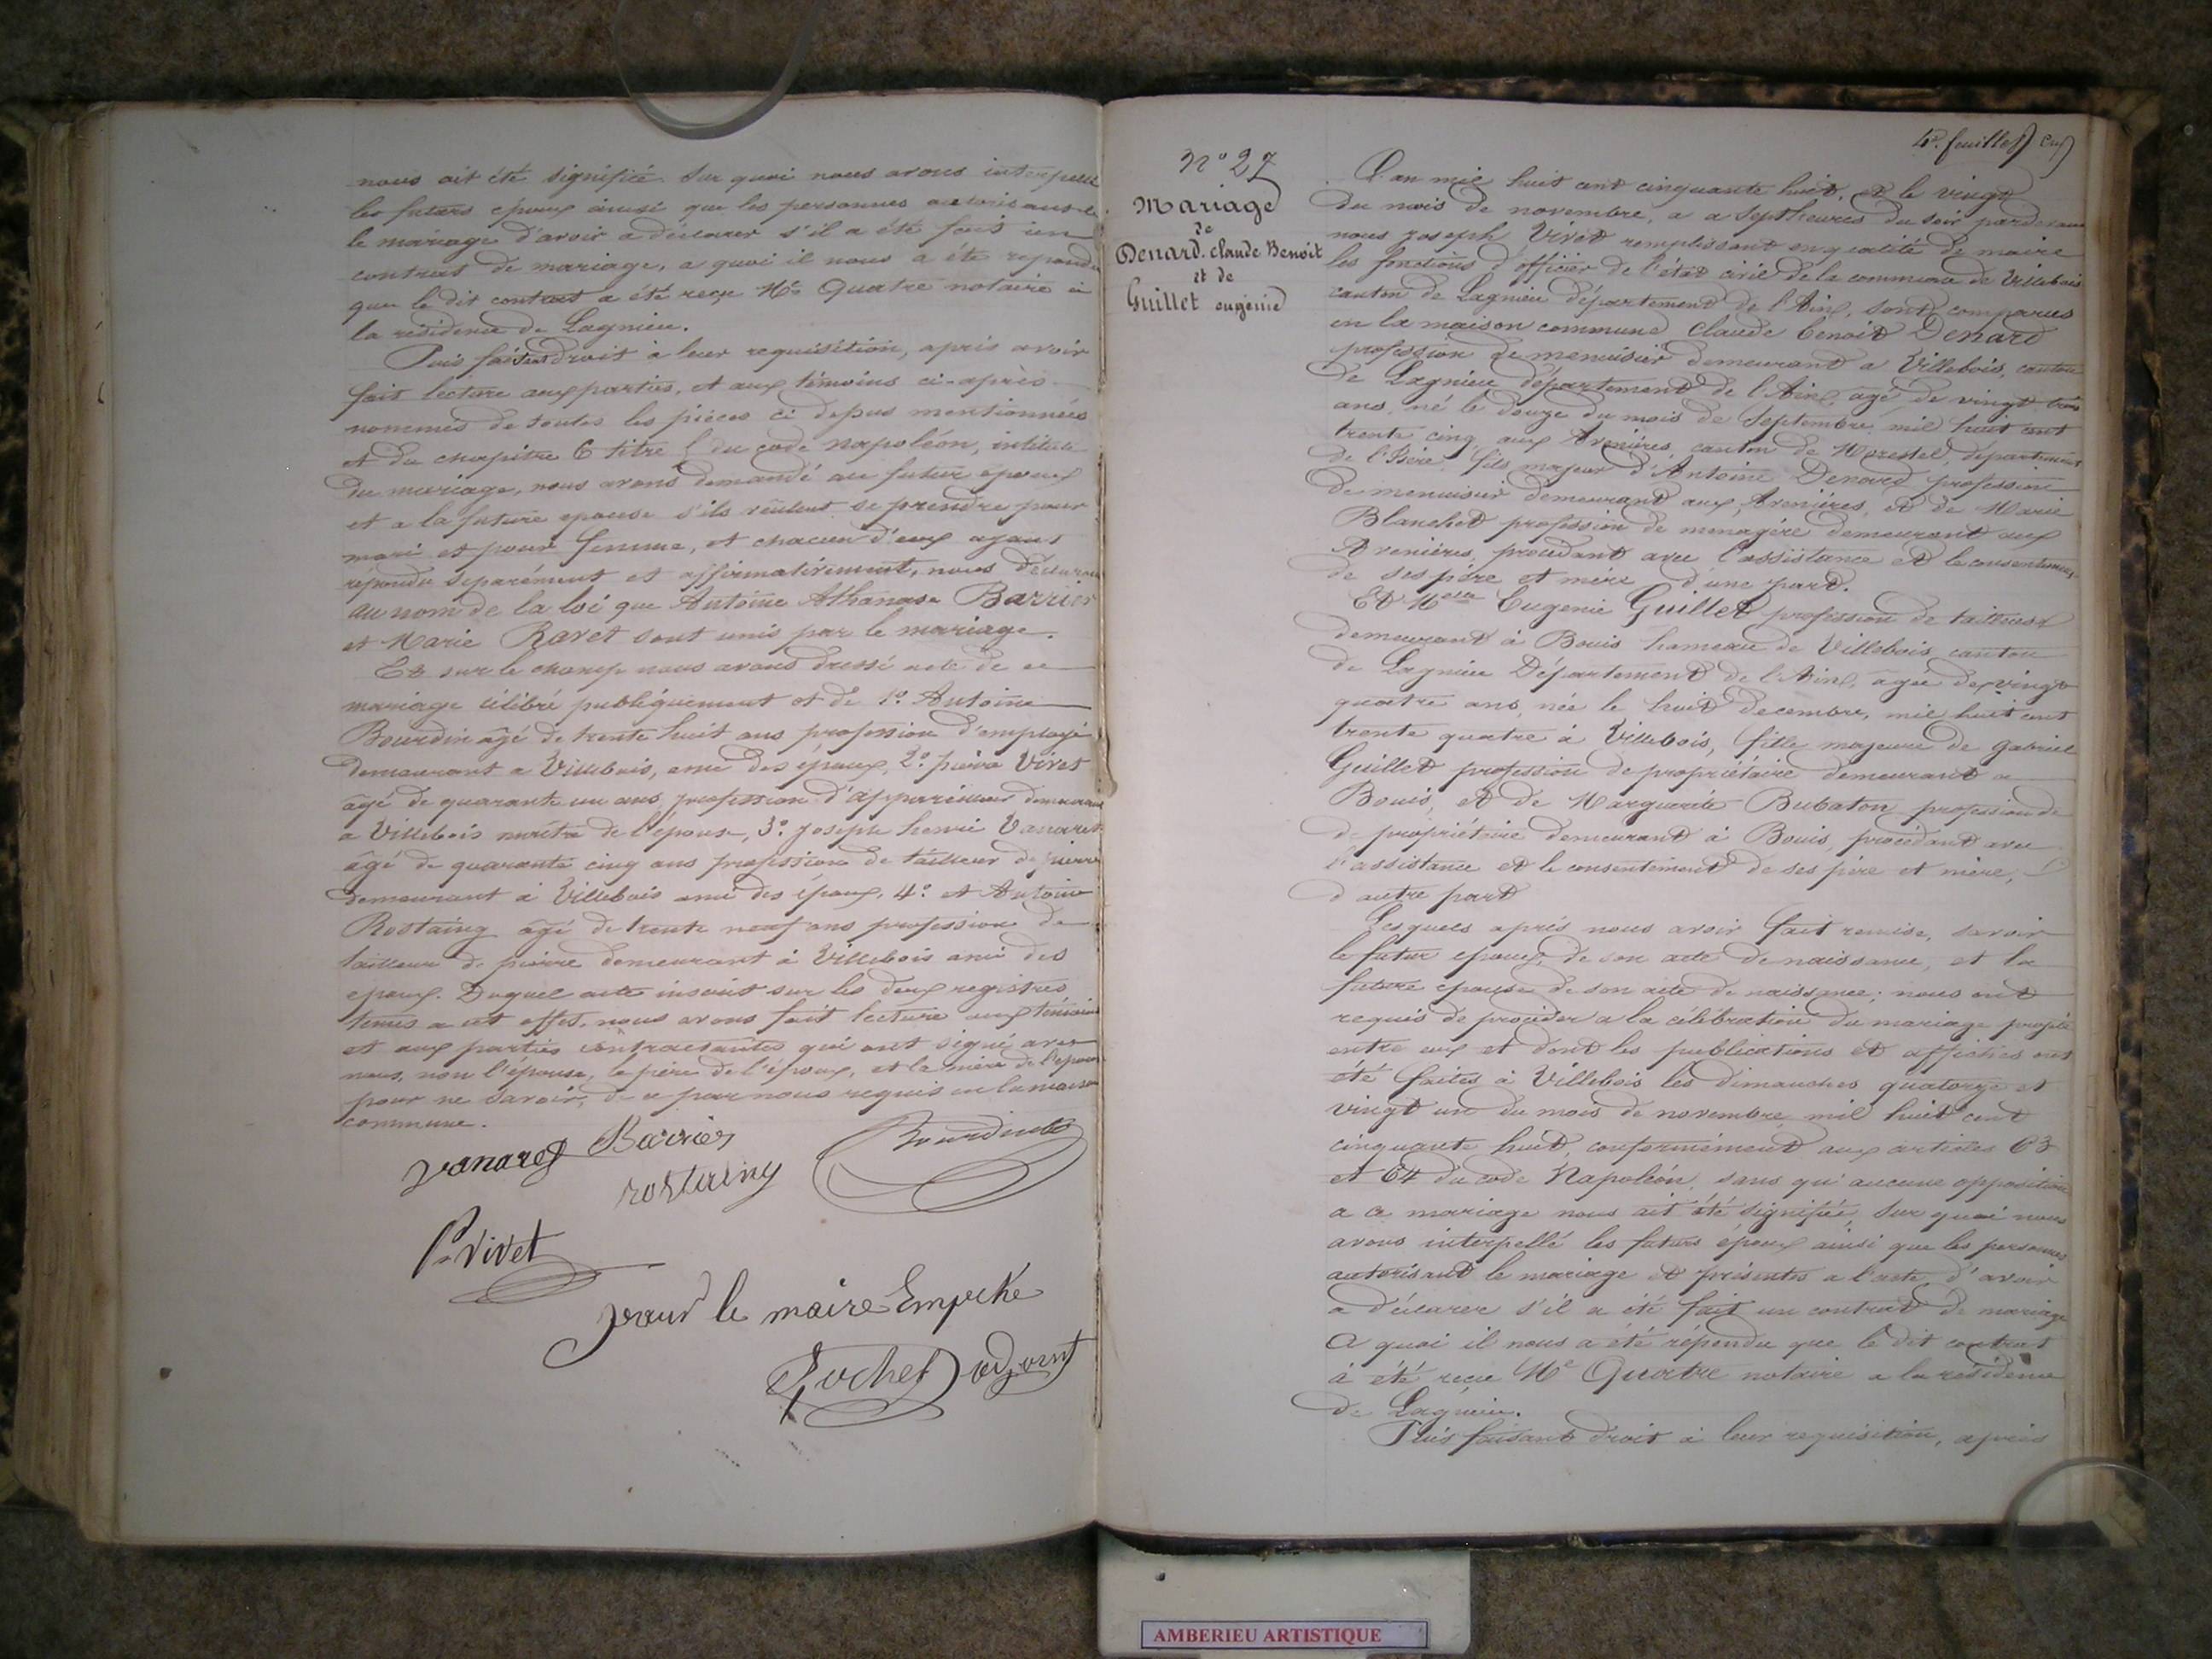 nous ait été signifiée. Sur quoi nous avons interpellé
les futurs époux ainsi que les personnes autorisant
le mariage d'avoir a déclarer s'il a été fait un
contrat de mariage, a quoi il nous a été répondu
que le dit contrat a été reçu Me Quatre notaire à
la résidence de Lagnieu.
Puis faisant droit à leur requisition, après avoir
fait lecture aux parties, et aux témoins ci-après
nommés de toutes les pièces ci dessus mentionnées
et du chapitre 6 titre du code Napoléon, intitulé
du mariage, nous avons demandé au futur époux
et a la future epouse s'ils veulent se prendre pour
mari et pour femme, et chacun d'eux ayant
répondu séparément et affirmativement, nous déclarons
au nom de la loi que Antoine Athanase Barrier
et Marie Ravet sont unis par le mariage.
Et sur le champ nous avons dressé acte de ce
mariage célébré publiquement et de 1o. Antoine
Bourdin âgé de trente huit ans profession d'employé
demeurant a Villebois, ami des époux, 2o. pierre Vivet
âgé de quarante un ans, profession d'appareilleur demeurant
a Villebois de l'épouse, 3o. Joseph henri Vanaret
âgé de quarante cinq ans profession de tailleur de pierre
demeurant à Villebois ami des époux, 4o. et Antoine
Rostaing âgé de trente neuf ans profession de
tailleur de pierre demeurant à Villebois ami des
epoux. Duquel acte inscrit sur les deux registres
tenus a cet effet, nous avons fait lecture aux témoins
et aux parties contractantes qui ont signé avec
nous, non l'épouse, le père de l'époux, et la mère de l'époux
pour ne savoir, de ce par nous requis en la maison
commune.
Vanaret Barrier Bourdin
rostaing
P. Vivet
pour le maire Empeche
Pochet adjoint
4e. feuillet
No 27
Mariage
de
Denard. claude Benoit
et de
Guillet eugenie
L'an mil huit cent cinquante huit, et le vingt
du mois de novembre, a sept heures du soir pardevant
nous Joseph Vivet remplissant en qualité de maire
les fonctions d'officier de l'état civil de la commune de Villebois
canton de Lagnieu département de l'Ain, sont comparus
en la maison commune Claude benoit Denard
profession de menuisier demeurant a Villebois, canton
de Lagnieu département de l'Ain, agé de vingt trois
ans, né le douze du mois de Septembre mil huit cent
trente cinq aux Avenières, canton de Morestel, département
de l'Isère, fils majeur d'Antoine Denard profession
de menuisier demeurant aux Avenières, et de Marie
Blanchet profession de menagère demeurant aux
Avenières, procédant avec l'assistance et le consentement
de ses père et mère d'une part.
Et Melle Eugenie Guillet profession de tailleuse
demeurant à Bouis hameau de Villebois canton
de Lagnieu Département de l'Ain, agée de vingt
quatre ans, née le huit decembre, mil huit cent
trente quatre à Villebois, fille majeure de gabriel
Guillet profession de propriétaire demeurant a
Bouis, et de Marguerite Bubaton profession de
de propriétaire demeurant à Bouis, procédant avec
l'assistance et le consentement de ses père et mère,
d'autre part
Lesquels après nous avoir fait remise, savoir
le futur epoux, de son acte de naissance, et la
future epouse de son acte de naissance; nous ont
requis de procéder a la célébration du mariage projeté
entre eux et dont les publications et affiches ont
été faites à Villebois les dimanches quatorze et
vingt un du mois de novembre mil huit cent
cinquante huit, conformément aux articles 63
et 64 du code Napoléon, sans qu'aucune opposition
a ce mariage nous ait été signifiée, Sur quoi nous
avons interpellé les futurs époux ainsi que les personnes
autorisant le mariage et présentes a l'acte, d'avoir
a déclarer s'il a été fait un contrat de mariage
a quoi il nous a été répondu que le dit contrat
à été reçu Me Quatre notaire a la résidence
de Lagnieu.
Puis faisant droit à leur requisition, après
AMBERIEU ARTISTIQUE